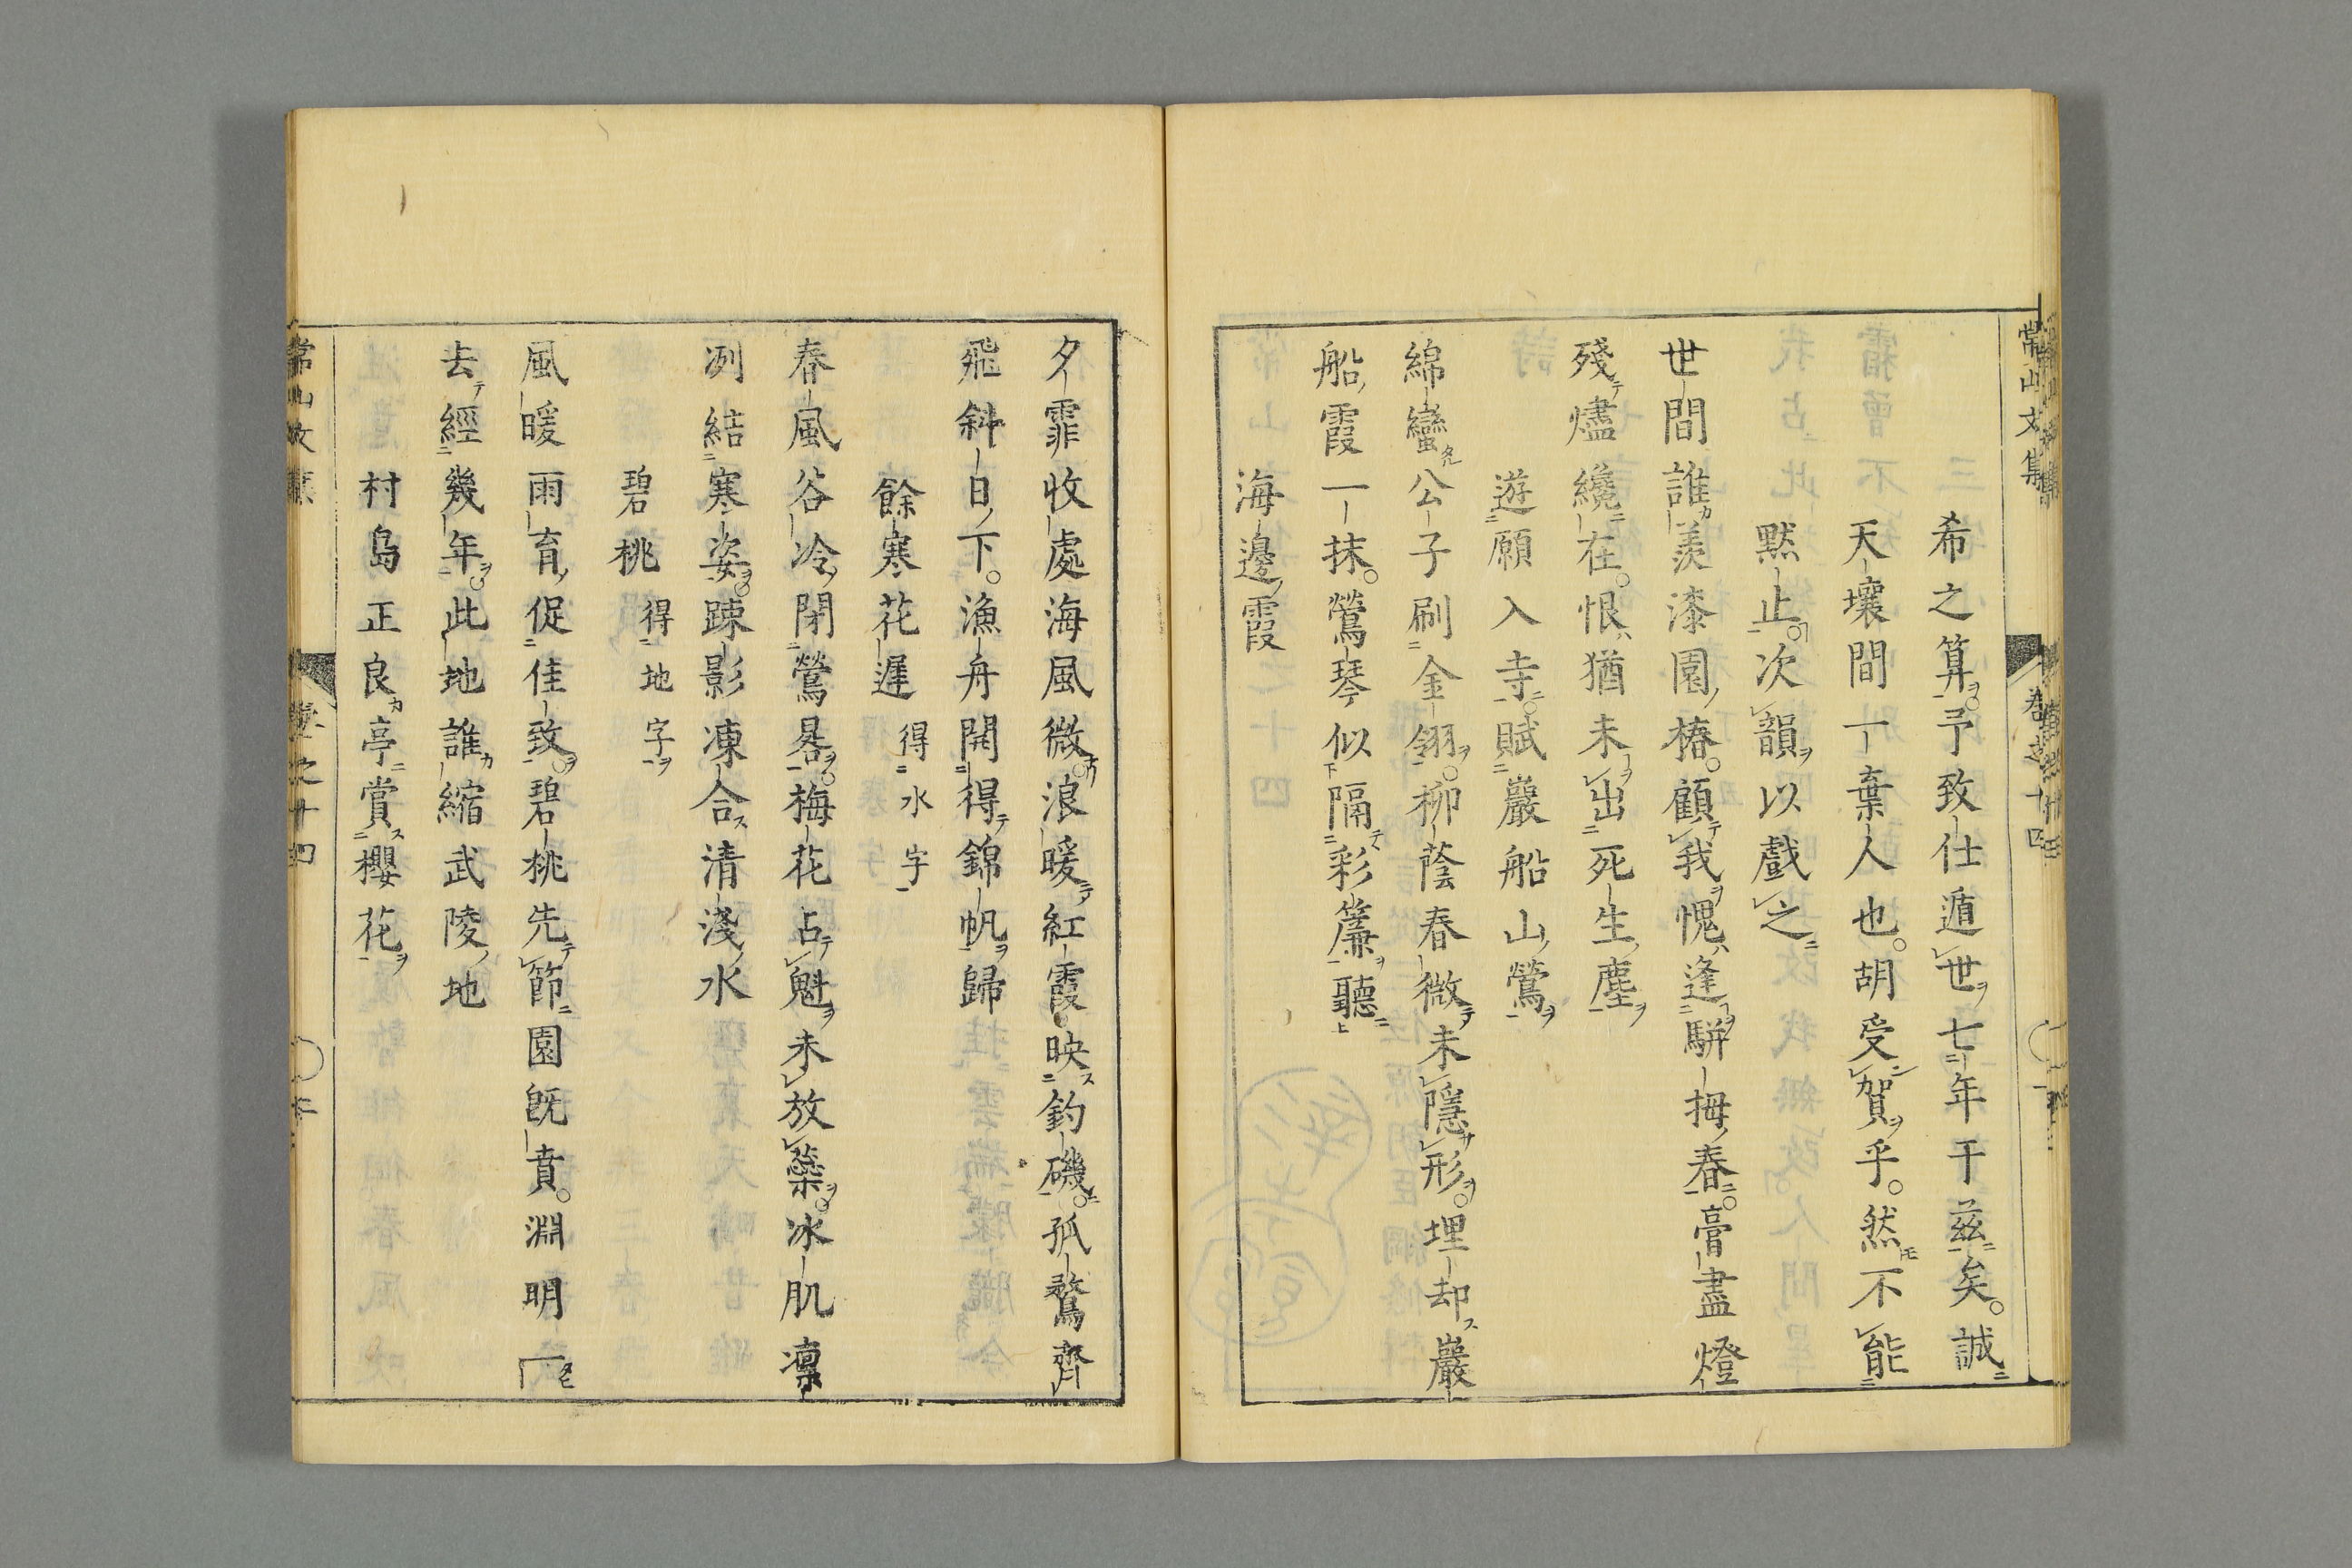 常山文集
卷之十四
希之算予致仕遁世七年于茲矣誠
天壤間一棄人也胡受賀乎然不能
默止次韻以戲之
世間誰羨漆園椿顧我愧逢駢拇春膏盡燈
殘燼纔在恨猶未出死生塵
遊願入寺賦巖船山鶯
綿蠻公子刷金翎柳蔭春微未隱形埋却巖
船霞一抹鶯琴似隔彩簾聽
海邊霞
夕霏收處海風微浪暖紅霞映釣磯孤鶩齊
飛斜日下漁舟開得錦帆歸
餘寒花遲 得水字
春風谷冷閉鶯晷梅花占魁未放蘂冰肌凛
冽結寒姿踈影凍合清淺水
碧桃 得地字
風暖雨育促佳致碧桃先節園既賁淵明一
去經幾年此地誰縮武陵地
村島正良亭賞櫻花